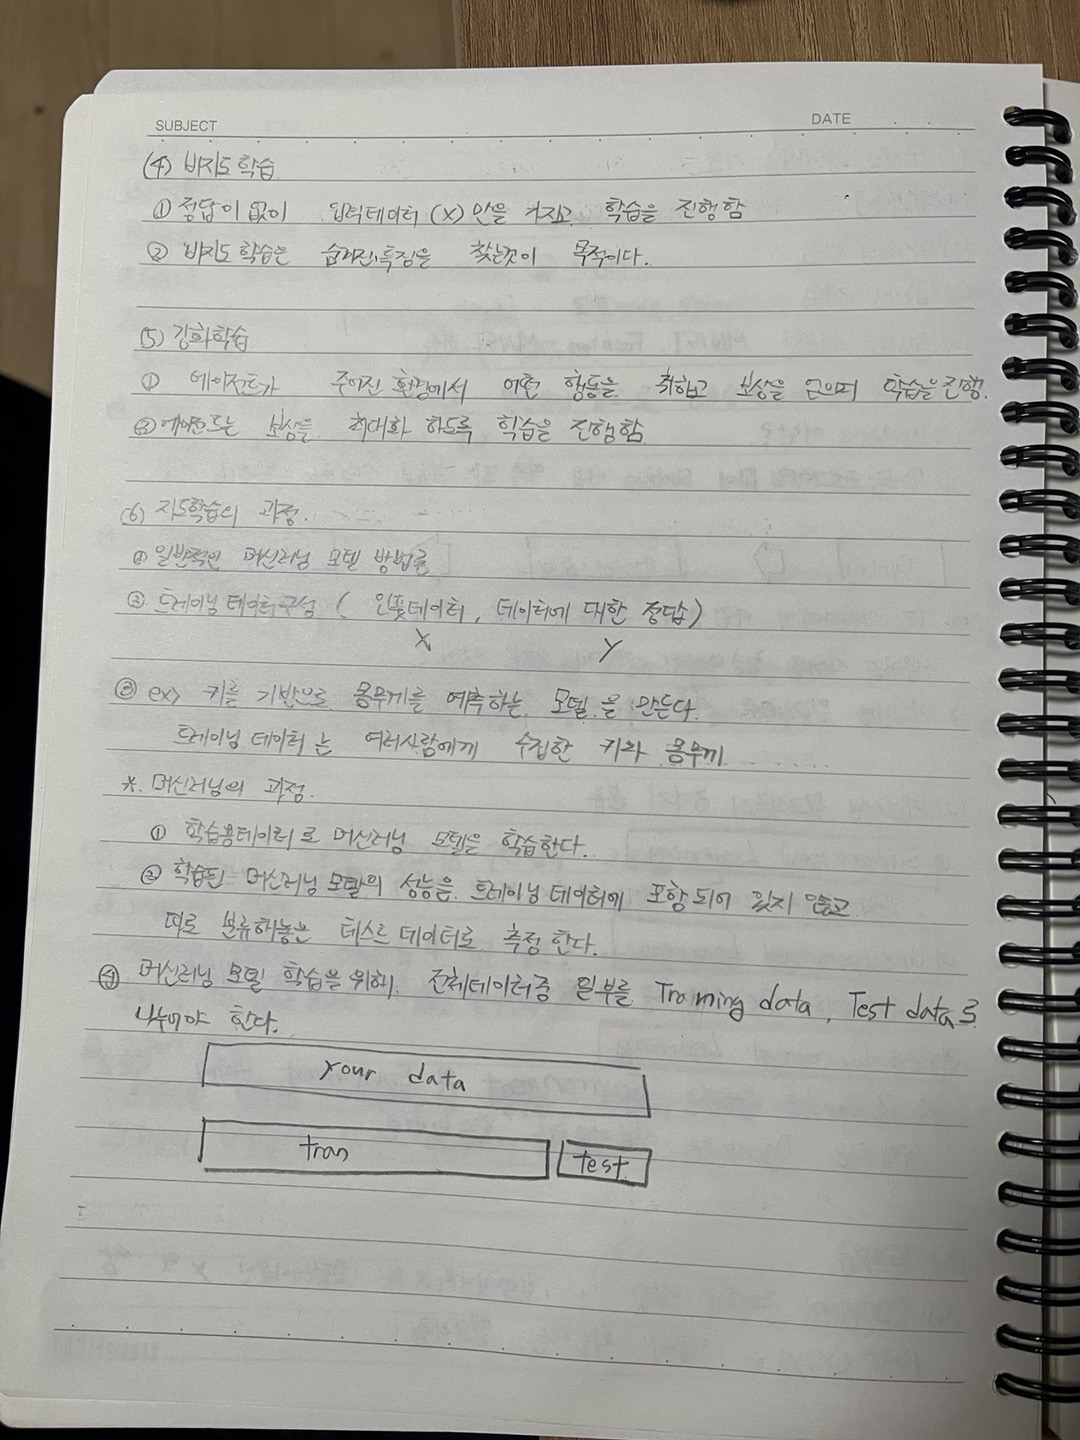 SUBJECT
DATE
(4) 비지도학습
① 정답이 없이 입력데이터(X)만을 가지고 학습을 진행함
② 비지도 학습은 숨겨진 특징을 찾는것이 목적이다.
(5) 강화학습
① 에이전트가 주어진 환경에서 어떤 행동을 취하고 보상을 얻으며 학습을 진행.
② 에이전트는 보상을 최대화 하도록 학습을 진행함
(6) 지도학습의 과정.
① 일반적인 머신러닝 모델 방법론
② 트레이닝 데이터 구성 ( 인풋데이터, 데이터에 대한 정답)
X Y
③ ex> 키를 기반으로 몸무게를 예측하는 모델을 만든다.
트레이닝 데이터는 여러사람에게 수집한 키와 몸무게
*. 머신러닝의 과정.
① 학습용데이터로 머신러닝 모델을 학습한다.
② 학습된 머신러닝 모델의 성능을 트레이닝 데이터에 포함되어 있지 않고
따로 분류해놓은 테스트 데이터로 측정 한다.
④ 머신러닝 모델 학습을 위해. 전체데이터중 일부를 Training data, Test data로
나누어야 한다.
your data
tran
test